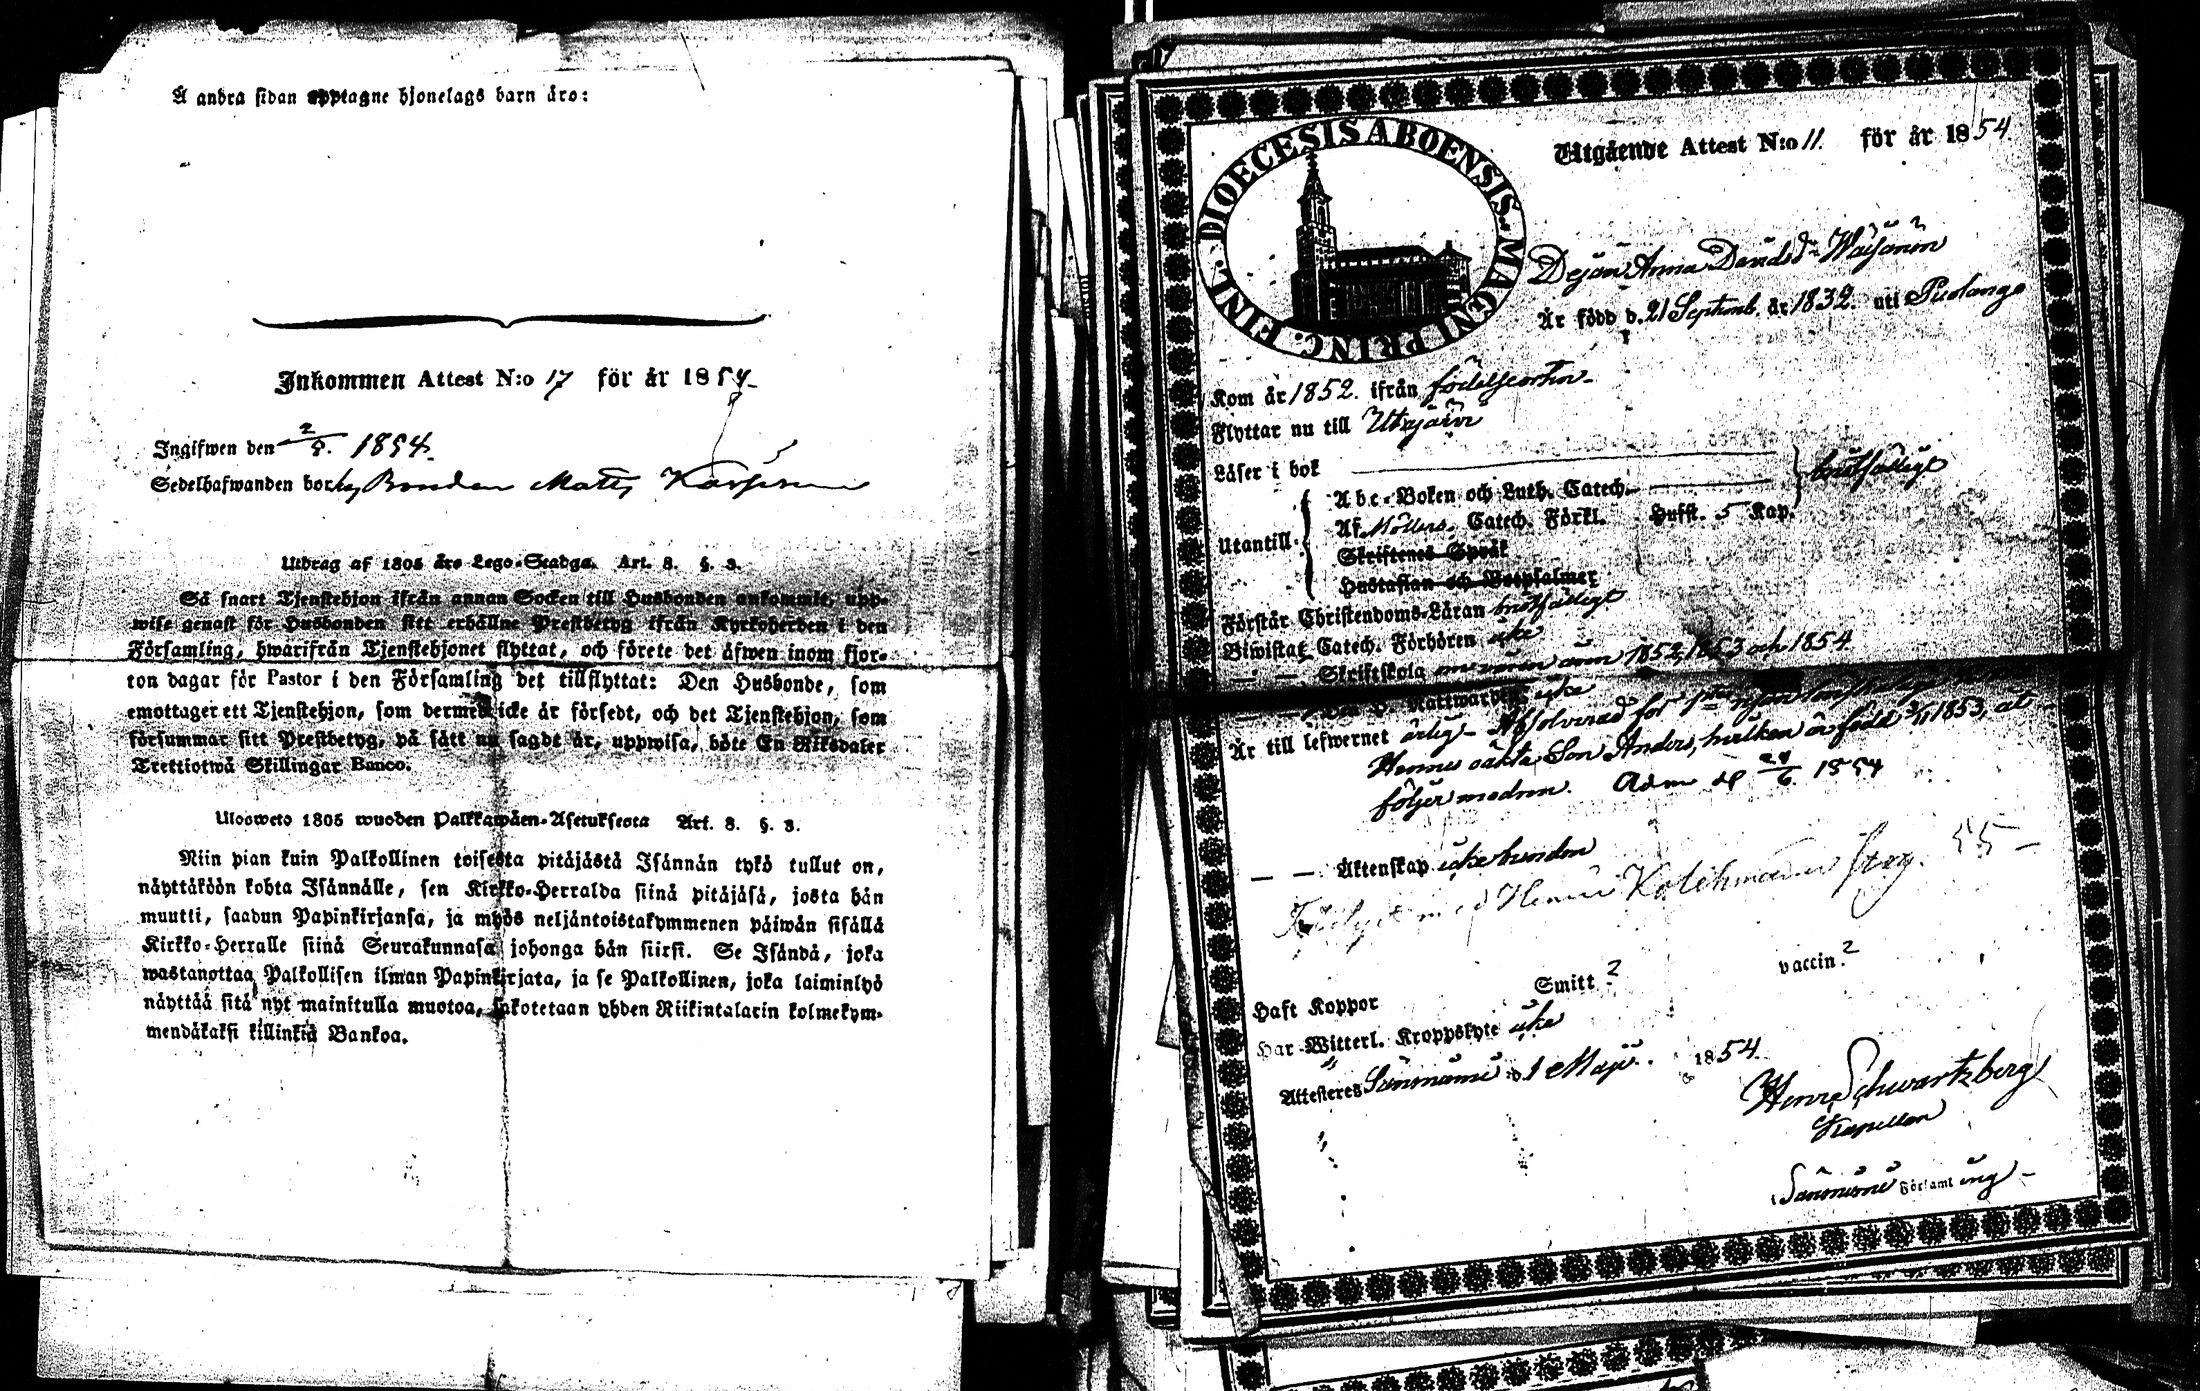 Å andra sidan upptagne hjonelags barn äro:
Inkommen Attest N:o 17 för år 1854
Ingifwen den 2/9. 1854.
Sedelhafwanden bor hos Bonden Matts
Utdrag af 1805 års Lego-Stadga. Art. 8. §. 3.
Så snart Tjenstehjon ifrån annan Socken till Husbonden ankommit, upp-
wise genast för Husbonden sitt erhållne Prestbetyg ifrån Kyrkoherden i den
Församling, hwarifrån Tjenstehjonet flyttat, och förete det äfwen inom fjor-
ton dagar för Pastor i den Församling det tillflyttat: Den Husbonde, som
emottager ett Tjenstehjon, som dermed icke är försedt, och det Tjenstehjon, som
försummar sitt Prestbetyg, på sätt nu sagdt är, uppwisa, böte En Riksdaler
Trettiotwå Skillingar Banco.
Ulosweto 1805 wuoden Palkkawäen-Asetuksesta Art. 8. §. 3.
Niin pian kuin Palkollinen toisesta pitäjästä Isännän tykö tullut on,
näyttäköön kohta Isännälle, sen Kirkko-Herralda siinä pitäjäsä, josta hän
muutti, saadun Papinkirjansa, ja myös neljäntoistakymmenen päiwän sisällä
Kirkko-Herralle siinä Seurakunnasa johonga hän siirsi. Se Isändä, joka
wastanottaa Palkollisen ilman Papinkirjata, ja se Palkollinen, joka laiminlyö
näyttää sitä nyt mainitulla muotoa, sakotetaan yhden Riikintalarin kolmekym-
mendäkaksi killinkiä Bankoa.
DIOECESIS ABOENSIS. MAGNI PRINC. FINL.
Utgående Attest N:o 11. för år 1854
Dejan Anna Davidsdr Wäisänen
Är född d. 21 Septemb. år 1832. uti Pudango
Kom år 1852. ifrån födelseorten
Flyttar nu till Utajärvi
Läser i bok
Utantill
Abc-Boken och Luth. Catech.
Af Möllers Catech. Förkl. Hufst. 5 Kap.
Skriftenes Språk
Hustaflan och Botpsalmer
bristfälligt
Förstår Christendoms-Läran bristfälligt
Biwistat Catech. Förhören icke
— — Skriftskola åren 1852, 1853 och 1854
Nattwarden icke
Är till lefwernet ärlig - Absolverad för
Hennes oäkta Son Anders, hvilken är född 1853, åt-
följer modren. Adm d 24/6. 1854
— — Äktenskap icke bunden
med Henric
Haft Koppor Smitt ? vaccin. ?
Har Witterl. Kroppslyte icke
Attesteres Säresniemi d. 1 Maji 1854.
Henr. Schwartzberg
Kapellan
i Säresniemi Församl ing